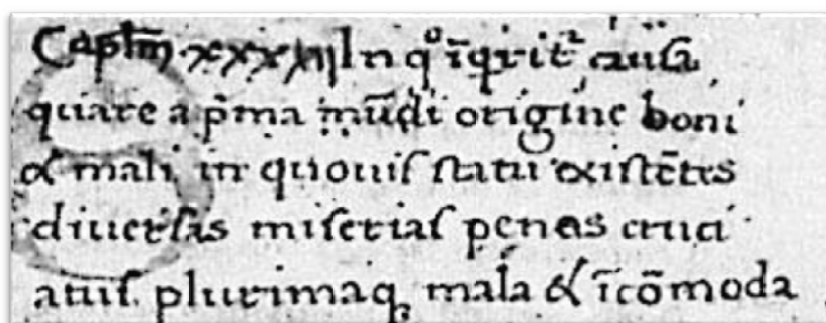 Capl̄m xxxiii In qº īqrit² causa
quare a p̄ma mūdi origine boni
& mali in quouis statu existētes
diuersas miserias penas cruci
atus plurimaq; mala & īcōmoda